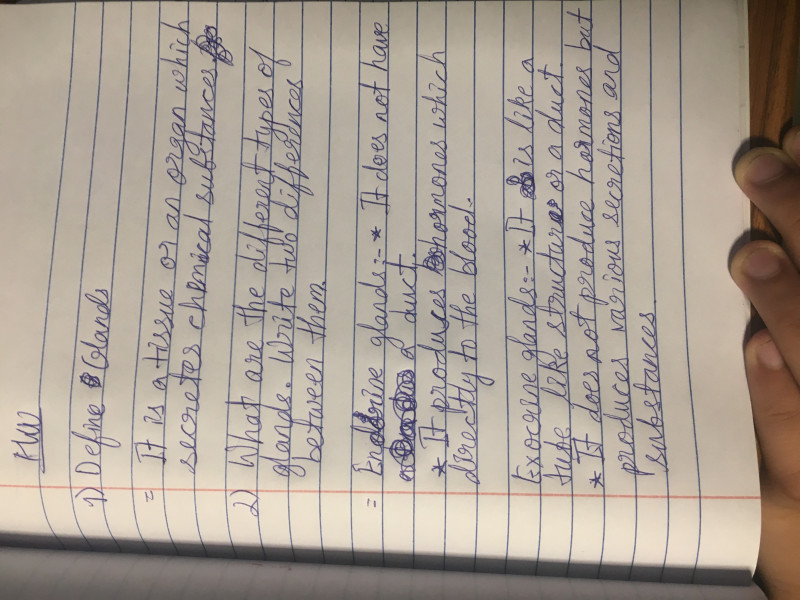 HW
1) Define Glands
= It is a tissue or an organ which
secretes chemical substances
2) What are the different types of
glands. Write two differences
between them.
= Endocrine glands:- * It does not have
a duct.
* It produces hormones which
directly to the blood.
Exocrine glands:- * It is like a
tube like structure or a duct.
* It does not produce hormones but
produces various secretions and
substances